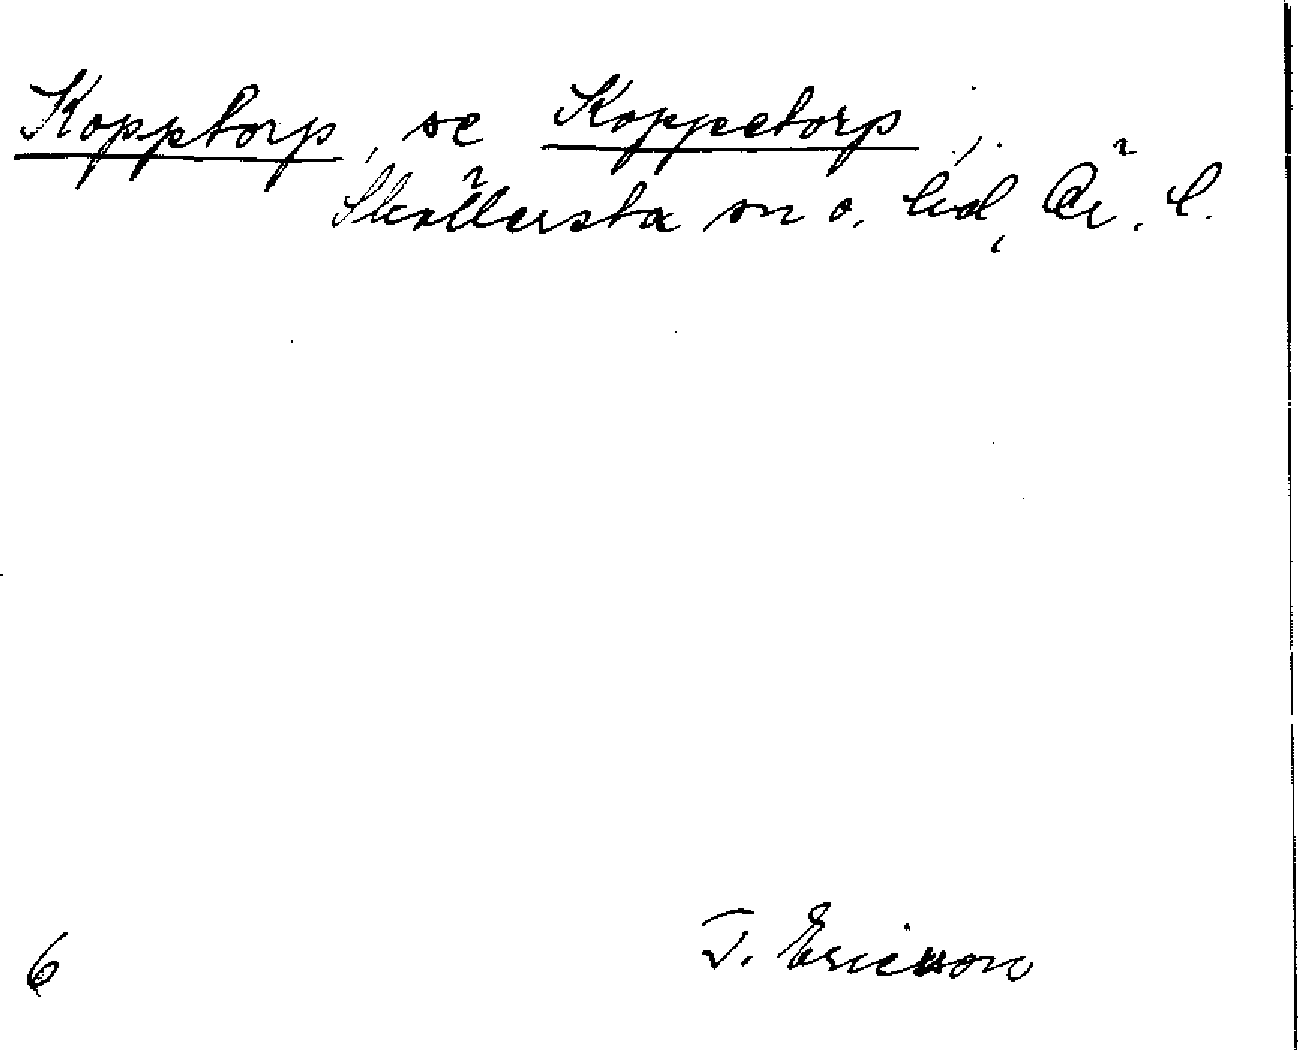 Kopptorp, se Koppetorp,
Sköllersta sn o. hd, Ör. l.
T. Ericsson
6